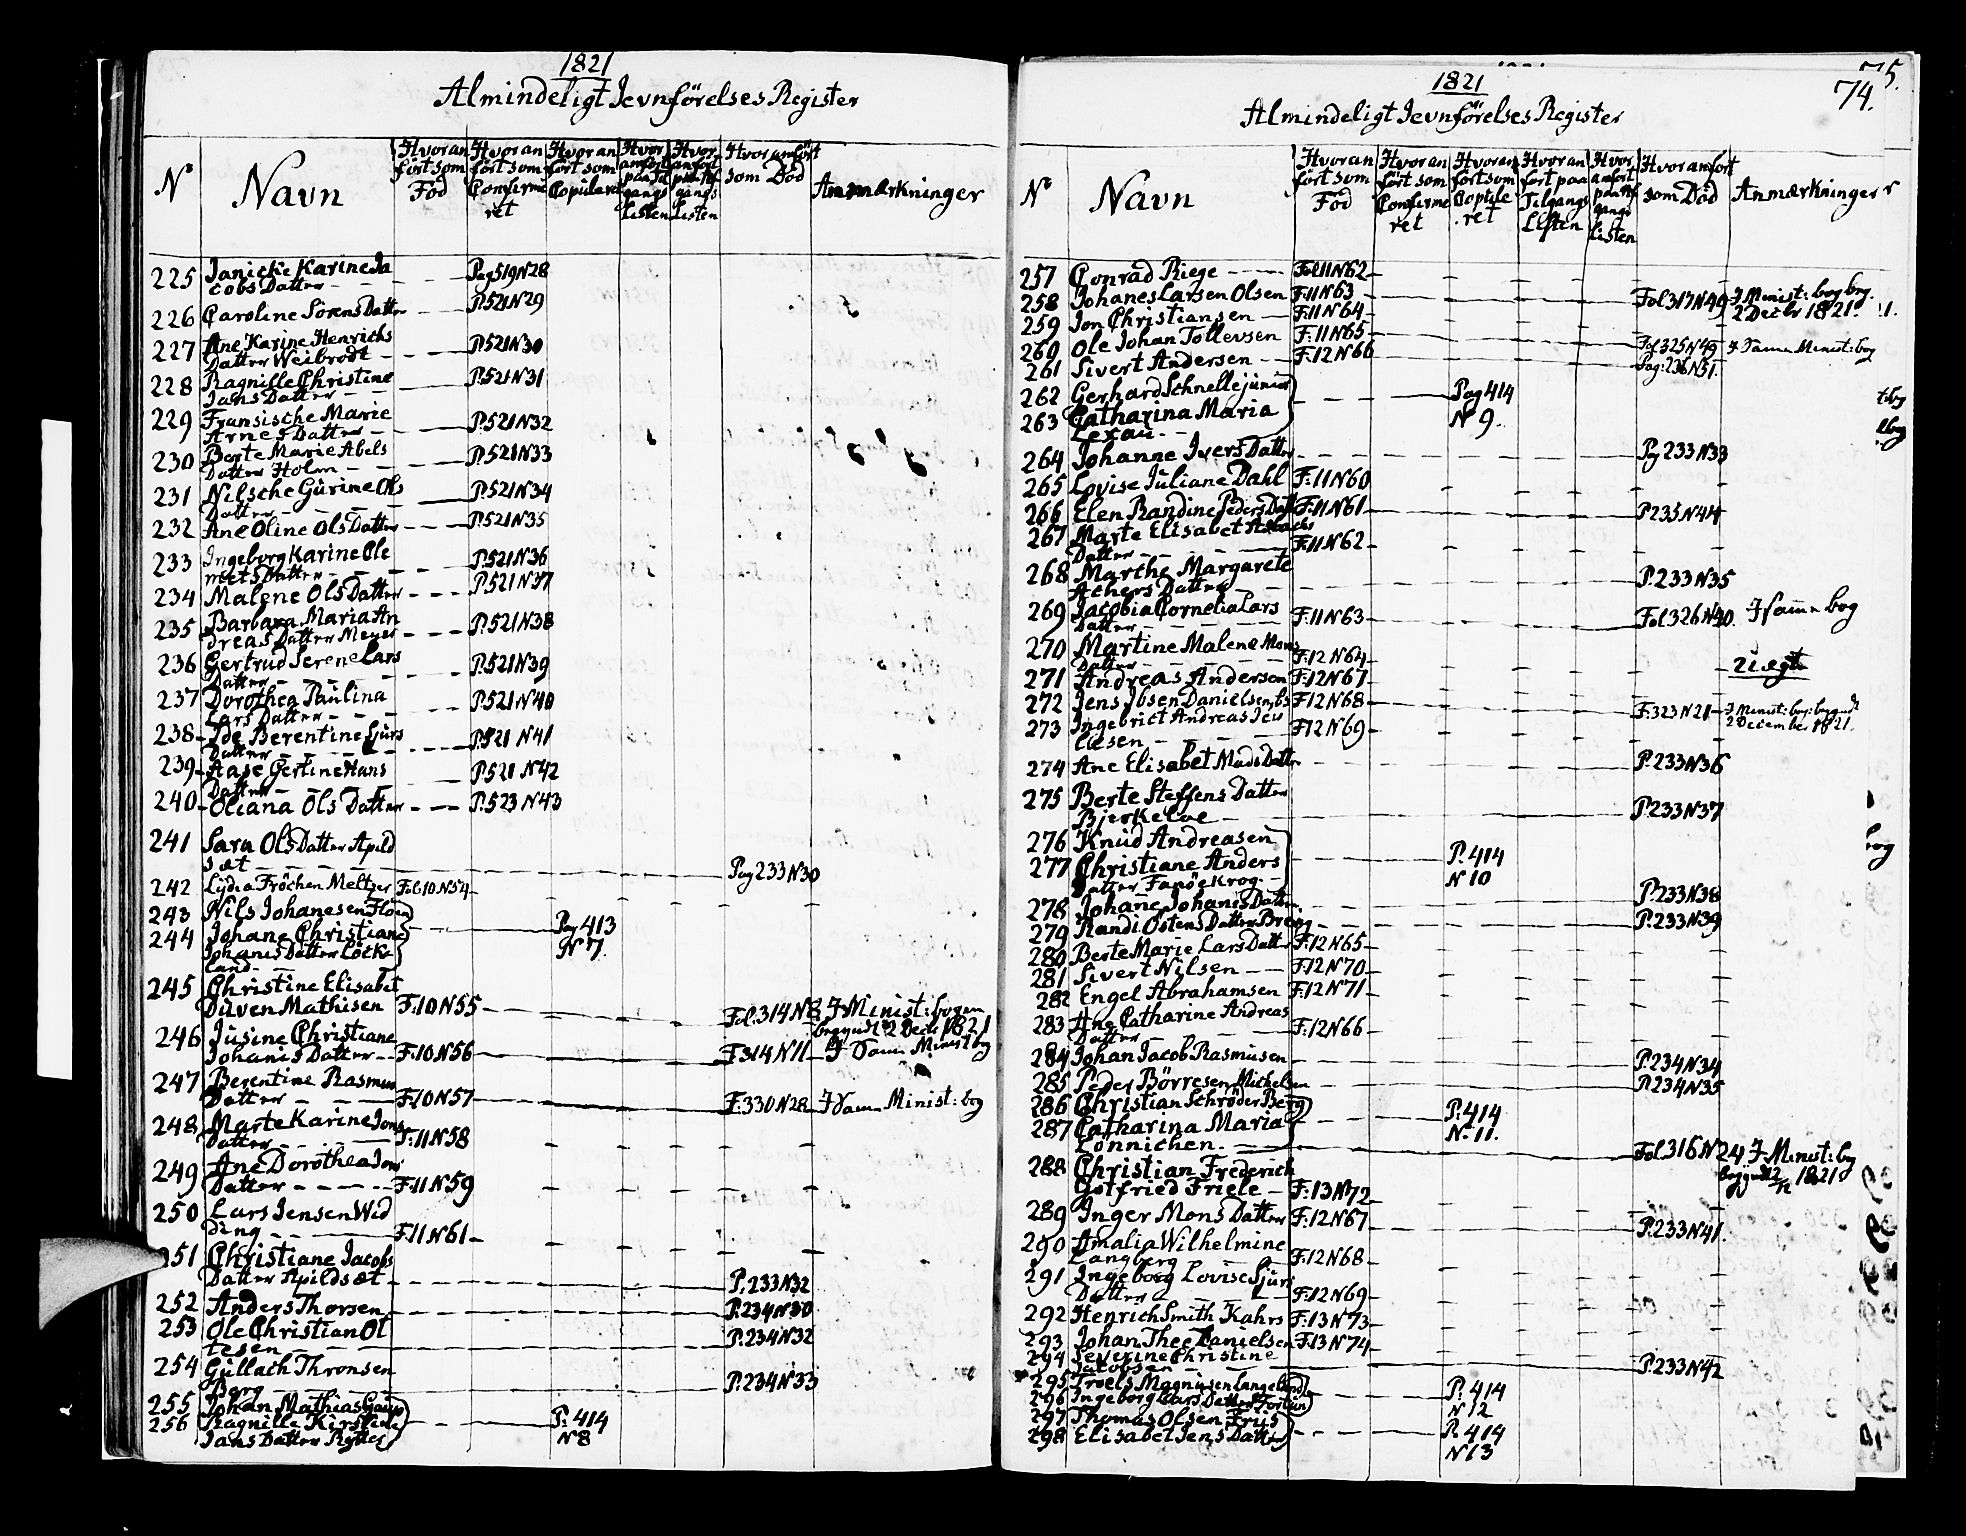 1821
Almindeligt Jevnförelses Register
No Navn Hvor an Hvor an Hvor an Hvor Hvor Hvor anfört Anmærkninger
fört som fört som fört som anfört anfört som Död
Föd Confirme Copuleret paa Til paa Af
ret gangs gangs
Listen Listen
225 Janicke Karine Ja Pag 519 N 28
cobs Datter
226 Caroline Sörens Datter P. 521 N 29
227 Ane Karine Henrichs P. 521 N 30
Datter Weibrodt
228 Ragnille Christine P. 521 N 31
Jans Datter
229 Fransische Marie P. 521 N 32
Arnes Datter
230 Berte Marie Abels P. 521 N 33
Datter Holm
231 Nilsche Gurine Ols P. 521 N 34
Datter
232 Ane Oline Ols Datter P. 521 N 35
233 Ingeborg Karine Ole P. 521 N 36
mets Datter
234 Malene Ols Datter P. 521 N 37
235 Barbara Maria An P. 521 N 38
dreas Datter Meyer
236 Gertrud Serene Lars P. 521 N 39
Datter
237 Dorothea Paulina P. 521 N 40
Lars Datter
238 Ide Berentine Sjurs P. 521 N 41
Datter
239 Aase Gertine Hans P. 521 N 42
Datter
240 Oliana Ols Datter P. 523 N 43
241 Sara Ols Datter Apild
sæt Pag 233 N 30
242 Lydia Fröchen Meltzer Fol 10 N 54
243 Nils Johanesen Floen Pag 413
244 Johane Christiane N 7.
Johanis Datter Löcke
land
245 Christine Elisabet
Duven Mathisen F. 10 N 55 Fol. 314 N 8 I Minist: bogen
begyndt 2 Decbr 1821
246 Jusine Christiane
Johanis Datter F. 10 N 56 F 314 N 11 I Samme Minist bog
247 Berentine Rasmus
Datter F. 10 N 57 F. 330 N 28 I Samme Minist: bog
248 Marte Karine Jons
Datter F. 11 N 58
249 Ane Dorothea Jons
Datter F. 11 N 59
250 Lars Jensen Wid
ding F. 11 N 61
251 Christiane Jacobs
Datter Apildsæt P. 233 N 32
252 Anders Thorsen P. 234 N 30
253 Ole Christian Ol P. 234 N 32
lesen
254 Gullach Thronsen
Berg P. 234 N 33
255 Johan Mathias P. 414
256 Ragnille Kirstine N 8
Jans Datter
75.
74.
1821
Almindeligt Jevnförelses Register
No Navn Hvor an Hvor an Hvor an Hvor an Hvor Hvor anfört Anmærkninger
fört som fört som fört som fört paa anfört som Död
Föd Confirme Copule Tilgangs paa Af
ret ret Listen gangs
Listen
257 Conrad Riege Fol 11 N 62
258 Johanes Larsen Olsen F. 11 N 63 Fol 317 N 49 I Minist: bog beg.
259 Jon Christiansen F. 11 N 64 2 Decbr 1821.
260 Ole Johan Tollevsen F. 11 N 65 Fol 325 N 49 I Samme Minist: bog
261 Sivert Andersen F. 12 N 66 Pag: 236 N 51.
262 Gerhard Schnelle junior Pag 414
263 Catharina Maria N 9.
Lexau.
264 Johanne Ivers Datter Pag 233 N 33
265 Lovise Juliane Dahl F. 11 N 60
266 Elen Randine Peders Datter F. 11 N 61 P 235 N 44
267 Marte Elisabet
Datter F. 11 N 62
268 Marthe Margarete
Achers Datter P. 233 N 35
269 Jacobia Cornelia Lars
Datter F. 11 N 63 Fol 326 N 40. I samme bog
270 Martine Malene Mons
Datter F. 12 N 64
271 Andreas Andersen F. 12 N 67 Uægte
272 Jens Ibsen Danielsen F 12 N 68
273 Ingebrict Andreas Jen F 12 N 69 F. 323 N 21 I Minist: bog: begyndt
2 December 1821.
274 Ane Elisabet Mads Datter P. 233 N 36
275 Berte Steffens Datter
Bjerkeloe P. 233 N 37
276 Knud Andreasen P. 414
277 Christiane Anders N 10
Datter Fanöekrog
278 Johane Johanis Datter P. 233 N 38
279 Randi Ostens Datter P. 233 N 39
280 Berte Marie Lars Datter F. 12 N 65
281 Sivert Nilsen F. 12 N 70
282 Engel Abrahamsen F. 12 N 71
283 Ane Catharine Andreas
Datter F. 12 N 66
284 Johan Jacob Rasmusen P. 234 N 34
285 Peder Börresen Michelsen P. 234 N 35
286 Christian Schröder Berg P. 414
287 Catharina Maria N 11.
Lönnichen.
288 Christian Frederich Fol. 316 N 24 I Minist: bog
Gotfried Friele F. 13 N 72 begyndt 2/12 1821
289 Inger Mons Datter F. 12 N 67 P. 233 N 41.
290 Amalia Wilhelmine
Langberg F. 12 N 68
291 Ingeborg Lovise Sjurs
Datter F. 12 N 69
292 Henrich Smith Kahrs F. 13 N 73
293 Johan Thee Danielsen F. 13 N 74
294 Severine Christine
Jacobsen P. 233 N 42
295 Troels Magnusen Langeland P. 414
296 Ingeborg Lars Datter N 12
297 Thomas Olsen Friis P. 414
298 Elisabet Jens Datter N 13